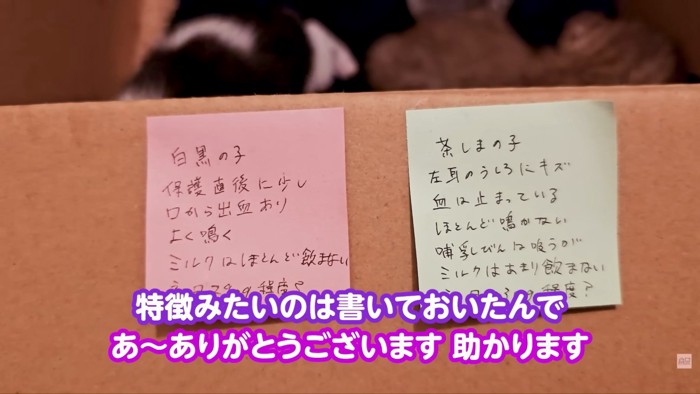 白黒の子
保護直後に少し
口から出血あり
よく鳴く
ミルクはほとんど飲まない
茶しまの子
左耳のうしろにキズ
血は止まっている
ほとんど鳴かない
哺乳びんは吸うが
ミルクはあまり飲まない
程度?
特徴みたいのは書いておいたんで
あ〜ありがとうございます 助かります